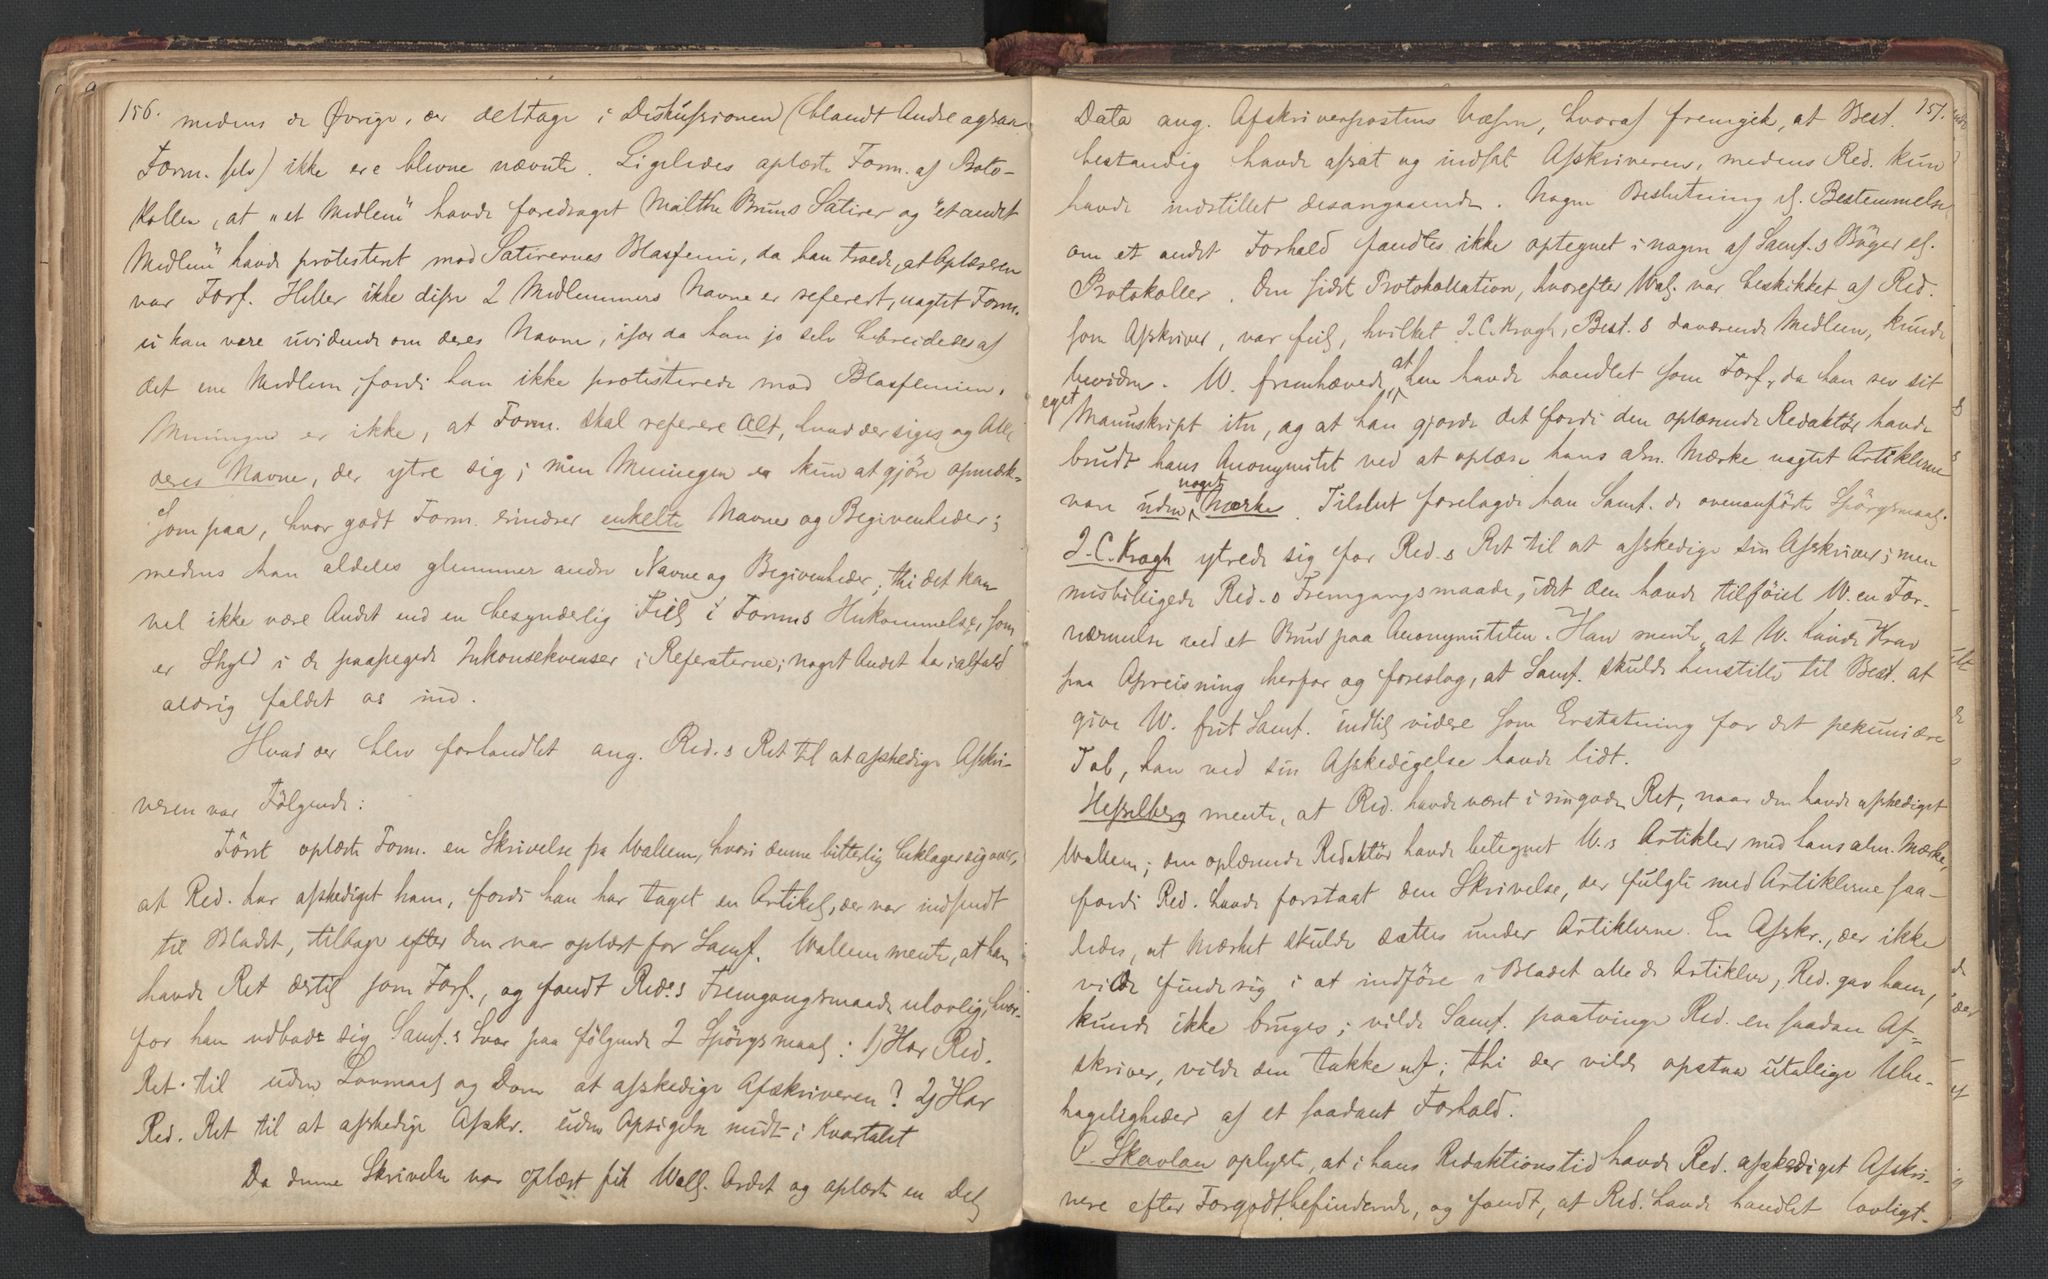 156. medens de Øvrige, der deltage i Diskussionen (blandt Andre ogsaa
Form. selv) ikke ere blevne nævnte. Ligeledes oplæste Form. af Proto-
kollen, at "et Medlem" havde foredraget Malthe Bruns Satirer og "et andet
Medlem" havde protesteret mod Satirernes Blasfemi, da han troede, at Oplæseren
var Forf. Heller ikke disse 2 Medlemmers Navne er refereret, uagtet Form.
ei kan være uvidende om deres Navne, især da han jo selv bebreidedes af
det ene Medlem, fordi han ikke protesterede mod Blasfemien.
Meningen er ikke, at Form. skal referere Alt, hvad der siges og Alle
deres Navne, der ytre sig; men Meningen er kun at gjöre opmærk-
som paa, hvor godt Form. erindrer enkelte Navne og Begivenheder;
medens han aldeles glemmer andre Navne og Begivenheder; thi det kan
vel ikke være Andet end en besynderlig Feil i Forms Hukommelse, som
er Skyld i de paapegede Inkonsekvenser i Referaterne; noget Andet har ialfald
aldrig faldet os ind.
Hvad der blev forhandlet ang. Red.s Ret til at afskedige Afskri-
veren var Fölgende:
Först oplæste Form. en Skrivelse fra Wallem, hvori denne bitterlig beklager sig over,
at Red. har afskediget ham, fordi han har taget en Artikel, der var indsendt
til Bladet, tilbage efter den var oplæst for Samf. Wallem mente, at han
havde Ret dertil som Forf., og fandt Red.s Fremgangsmaade ulovlig, hvor-
for han udbad sig Samf.s Svar paa fölgende 2 Spörgsmaal: 1) Har Red.
Ret til uden Lovmaal og Dom at afskedige Afskriveren? 2) Har
Red. Ret til at afskedige Afskr. uden Opsigelse midt i Kvartalet
Da denne Skrivelse var oplæst fik Wall. Ordet og oplæste en Del
157.
Data ang. Afskriverpostens Væsen, hvoraf fremgik, at Best.
bestandig havde afsat og indsat Afskriveren, medens Red. kun
havde indstillet desangaaende. Nogen Beslutning el. Bestemmelse
om et andet Forhold fandtes ikke optegnet i nogen af Samf.s Böger el.
Protokoller. Den sidste Protokollation, hvorefter Wal. var beskikket af Red.
som Afskriver, var feil, hvilket J. C. Kragh, Best.s daværende Medlem, kunde
bevidne. W. fremhævede, at han havde handlet som Forf., da han rev sit
eget Manuskript itu, og at han gjorde det fordi den oplæsende Redaktör havde
brudt hans Anonymitet ved at oplæse hans alm. Mærke uagtet Artiklerne
vare uden noget Mærke. Tilslut forelagde han Samf. de ovenanförte Spörgsmaal.
J. C. Kragh ytrede sig for Red.s Ret til at afskedige sin Afskriver; men
misbilligede Red.s Fremgangsmaade, idet den havde tilföiet W. en For-
nærmelse ved et Brud paa Anonymiteten. Han mente, at W. havde Krav
paa Opreisning herfor og foreslog, at Samf. skulde henstille til Best. at
give W. frit Samf. indtil videre som Erstatning for det pekuniære
Tab, han ved sin Afskedigelse havde lidt.
Hesselberg mente, at Red. havde været i sin gode Ret, naar den havde afskediget
Wallem; den oplæsende Redaktör havde betegnet W.s Artikler med hans alm. Mærke,
fordi Red. havde forstaat den Skrivelse, der fulgte med Artiklerne saa-
ledes, at Mærket skulde sættes under Artiklerne. En Afskr., der ikke
vilde finde sig i at indföre i Bladet alle de Artikler, Red. gav ham,
kunde ikke bruges; vilde Samf. paatvinge Red. en saadan Af-
skriver, vilde den takke af; thi der vilde opstaa utallige Ube-
hageligheder af et saadant Forhold.
O. Skavlan oplyste, at i hans Redaktionstid havde Red. afskediget Afskri-
vere efter Forgodtbefindende, og fandt, at Red. havde handlet lovligt.